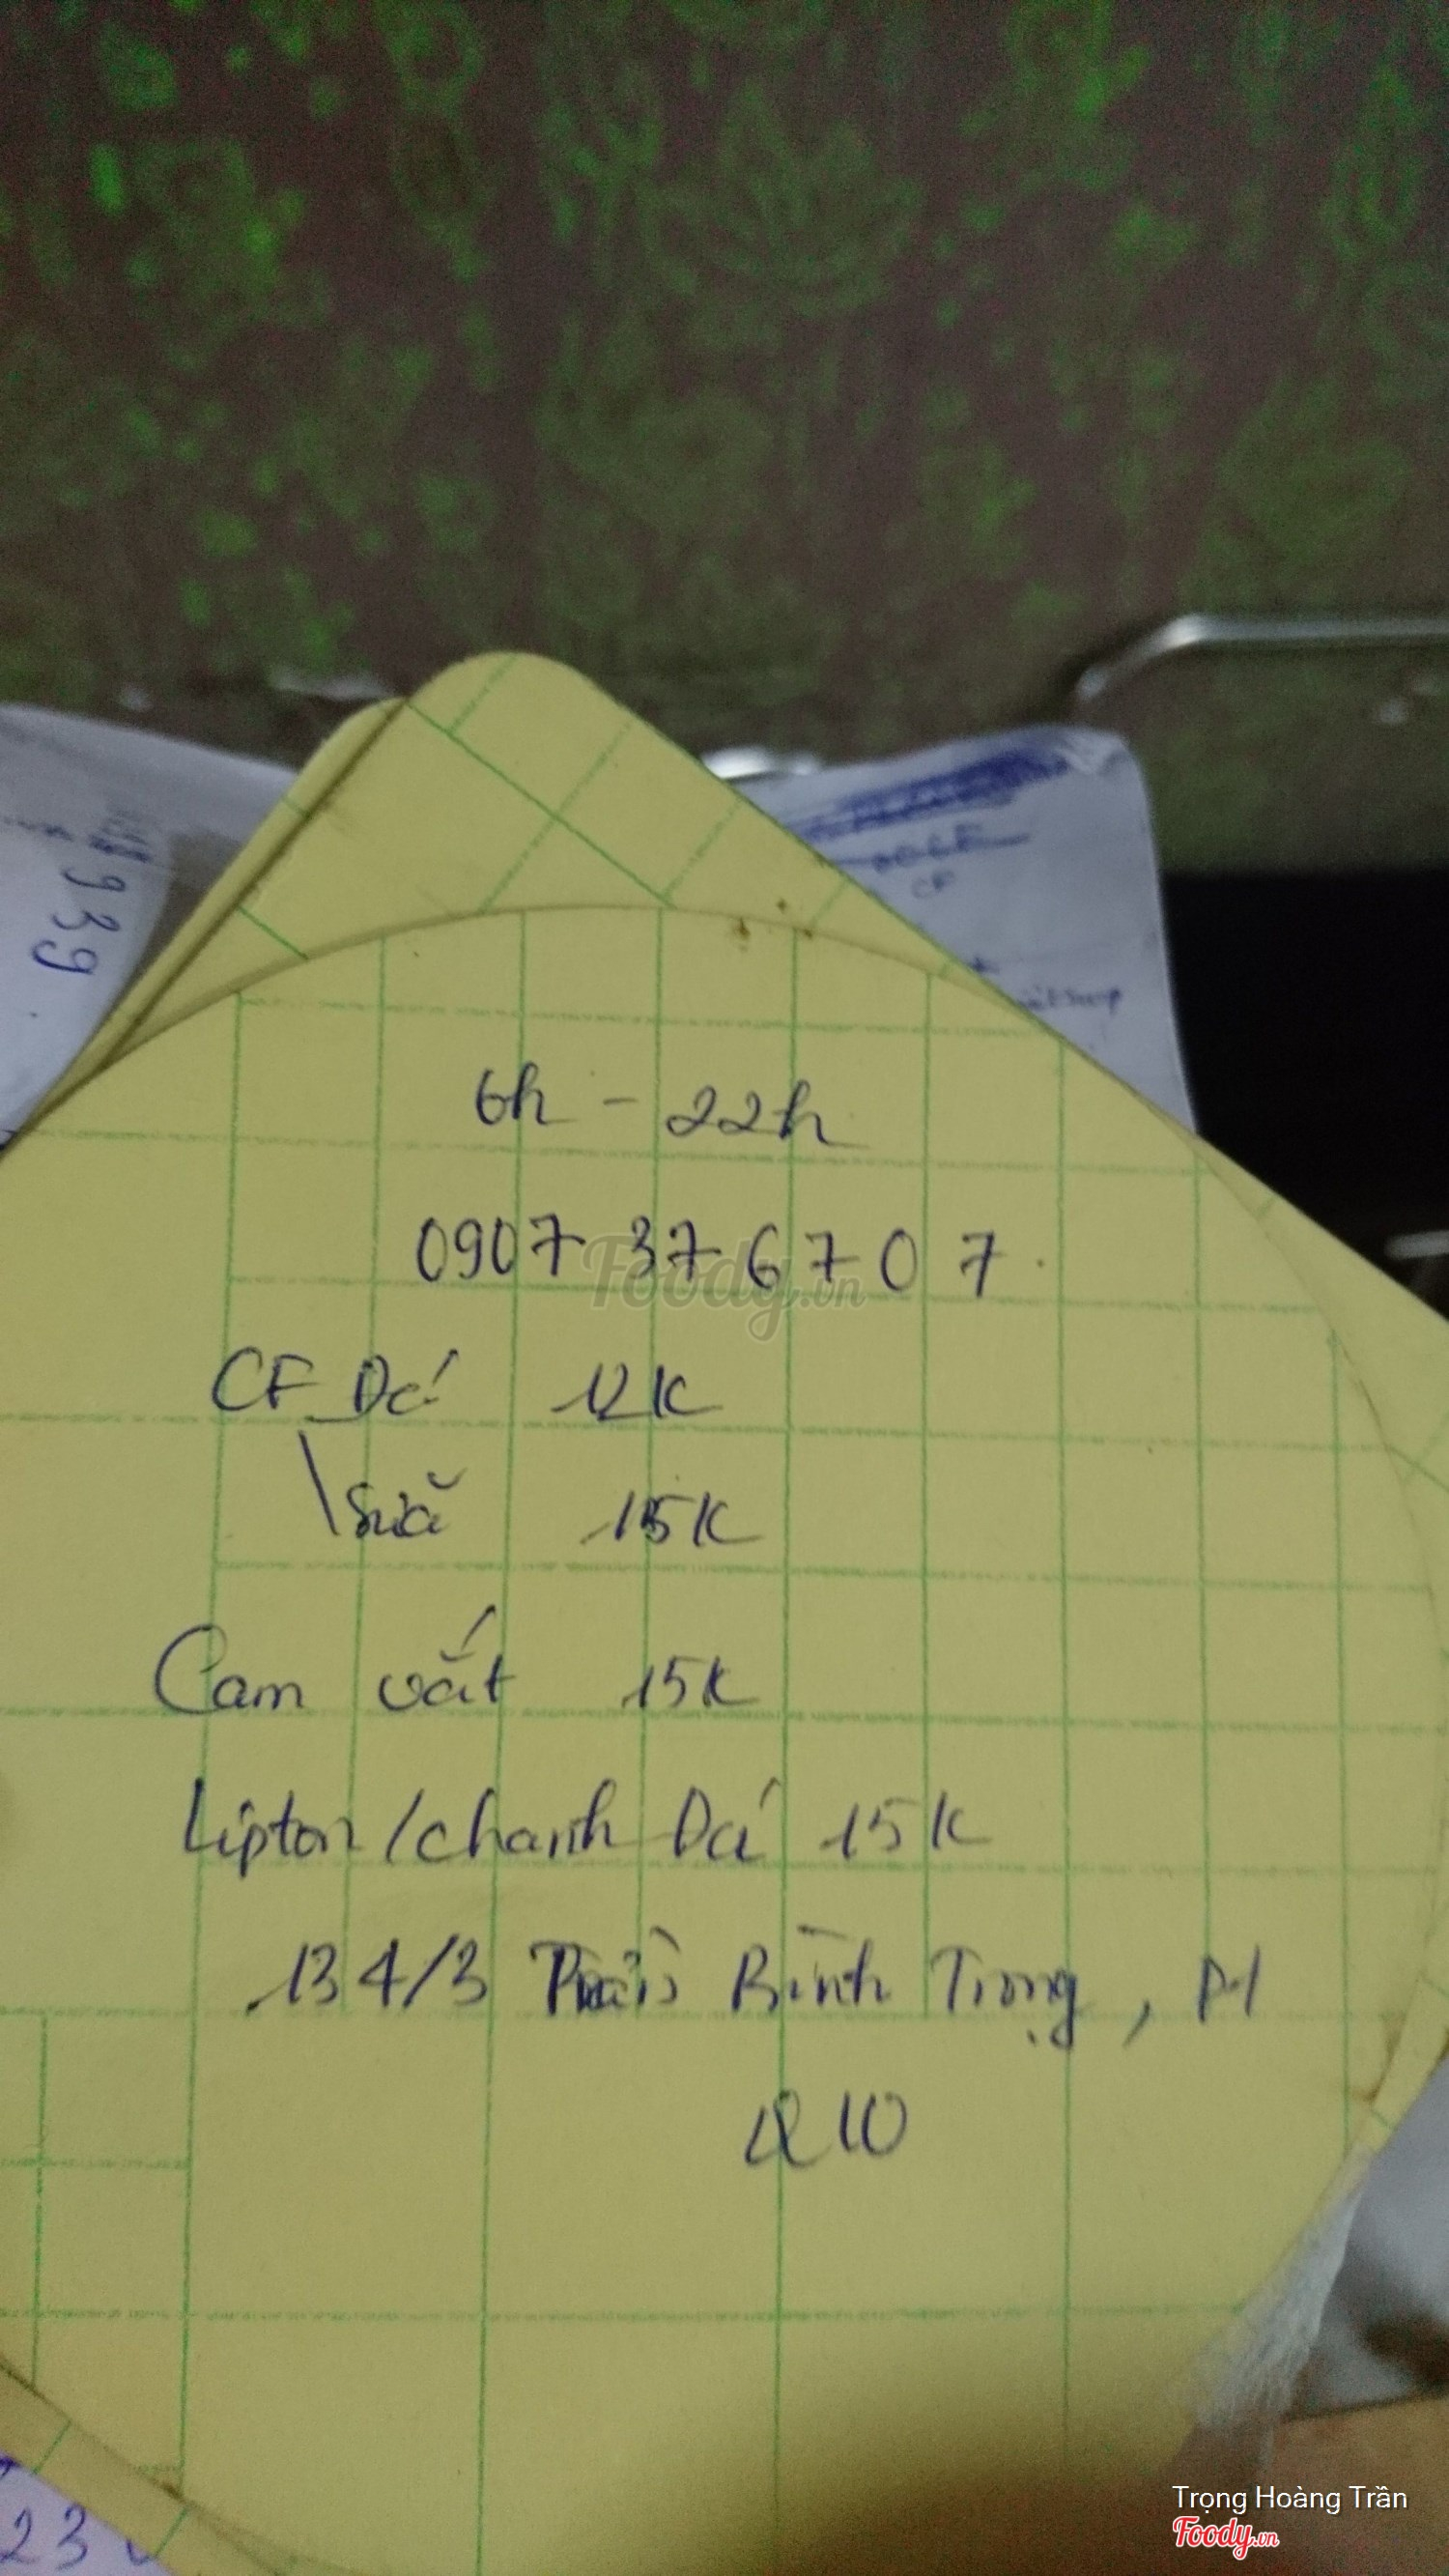 939
CF
6h - 22h
0907 376707.
Foody.vn
CF Dá 12K
\ Sữa 15K
Cam vắt 15K
Lipton / chanh Dá 15K
134/3 Trần Bình Trọng, P1
Q10
23
Trọng Hoàng Trần
Foody.vn